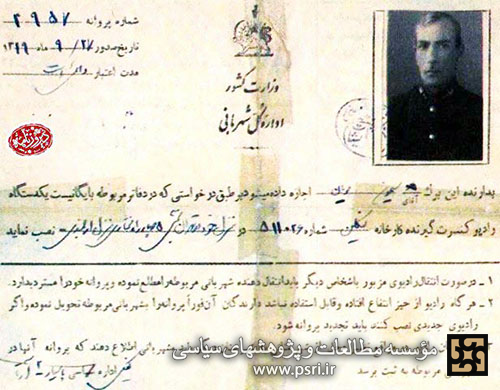 شماره پروانه ۲۹۵۷
تاریخ صدور ۲۷/ ۹ ماه ۱۳۱۹
مدت اعتبار
وزارت کشور
اداره کل شهربانی
دیروزنامه
بدارنده این برگ آقای اجازه داده میشود طبق درخواستی که در دفاتر مربوطه بایگانیست یکدستگاه
رادیو کنسرت گیرنده کارخانه شماره ۵۱۱۰۲۶ در نصب نماید
۱ـ در صورت انتقال رادیوی مزبور باشخاص دیگر باید انتقال دهنده شهربانی مربوطه را مطلع نموده و پروانه خود را مسترد بدارد.
۲ـ هرگاه رادیو از حیز انتفاع افتاده و قابل استفاده نباشد دارندگان آن فوراً پروانه را بشهربانی مربوطه تحویل نموده و اگر
رادیوی جدیدی نصب کنند باید تجدید پروانه شود.
بشهربانی اطلاع دهند که پروانه آنها در
مربوطه به ثبت برسد
مؤسسه مطالعات و پژوهشهای سیاسی
www.psri.ir